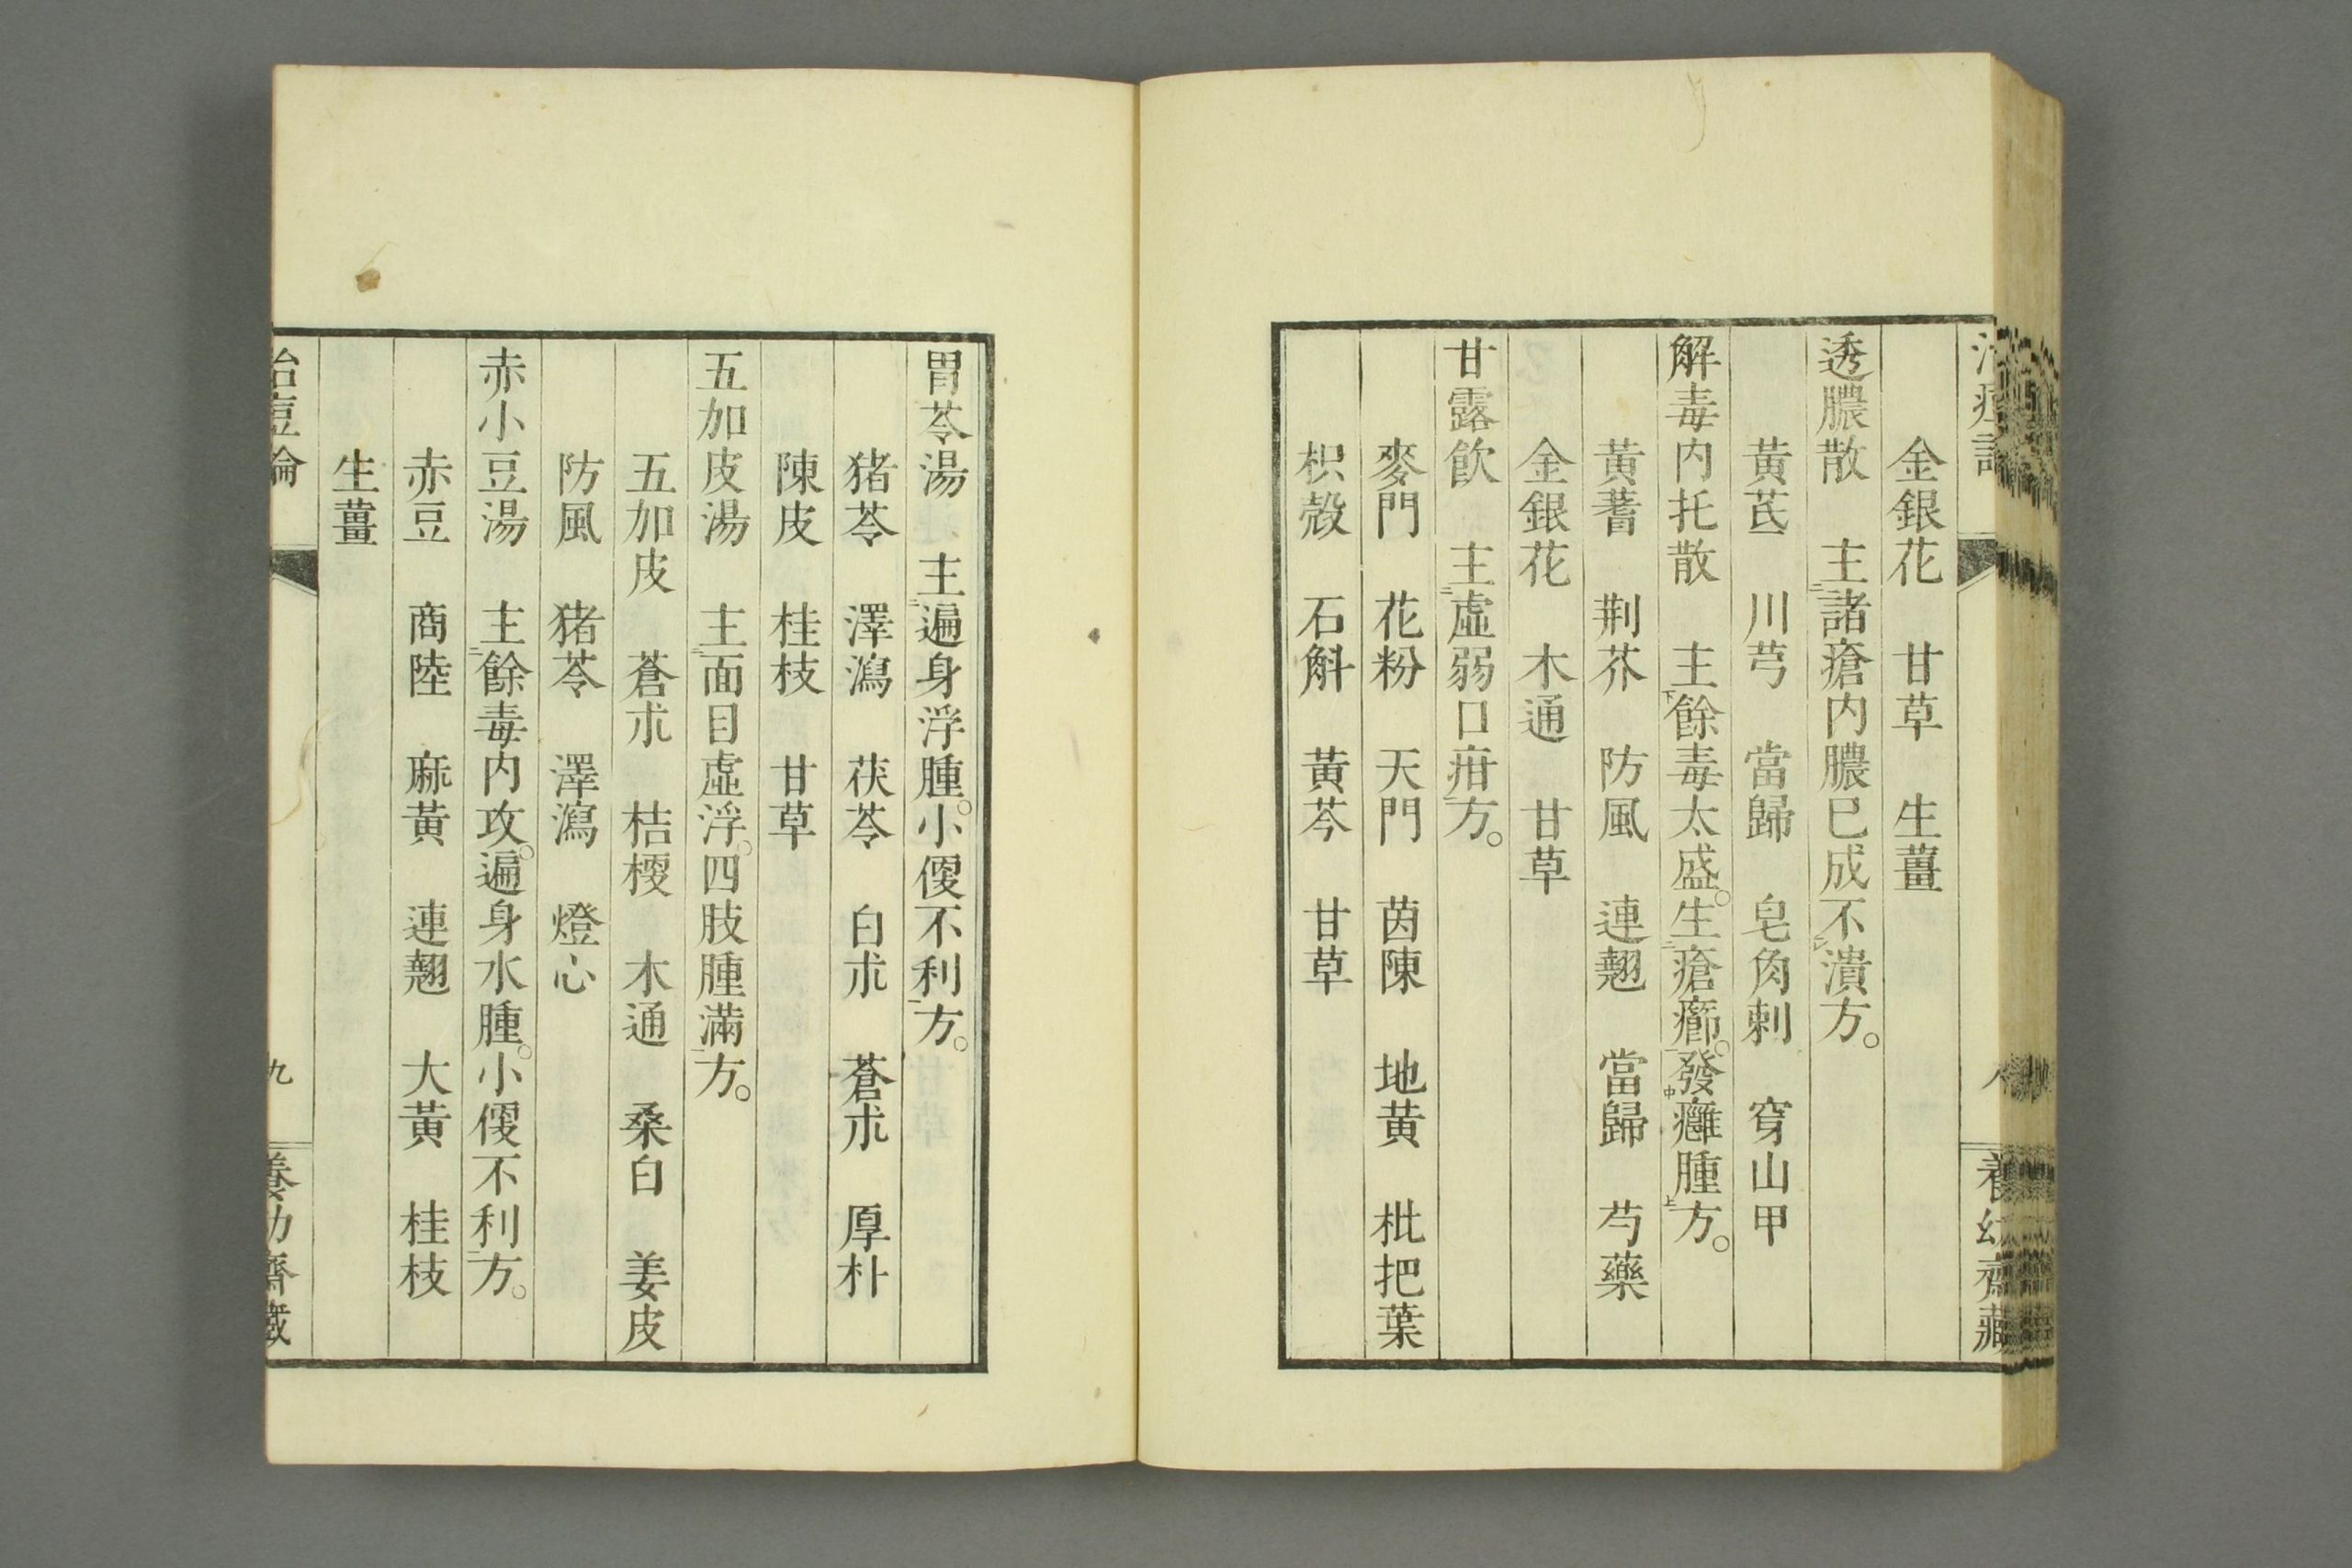 金銀花　甘草　生薑
透膿散　主㆓諸瘡内膿已成不㆑潰方。
黃芪　川芎　當歸　皂角刺　穿山甲
解毒内托散　主㆘餘毒太盛。生㆓瘡癤㆒。發㆗癰腫㆖方。
黃蓍　荆芥　防風　連翹　當歸　芍藥
金銀花　木通　甘草
甘露飲　主㆓虛弱口疳㆒方。
麥門　花粉　天門　茵陳　地黃　枇把葉
枳殼　石斛　黃芩　甘草
養幼齋藏
胃苓湯　主㆓遍身浮腫。小便不利㆒方。
猪苓　澤瀉　茯苓　白朮　蒼朮　厚朴
陳皮　桂枝　甘草
五加皮湯　主㆓面目虛浮。四肢腫滿㆒方。
五加皮　蒼朮　桔梗　木通　桑白　姜皮
防風　猪苓　澤瀉　燈心
赤小豆湯　主㆓餘毒内攻。遍身水腫。小便不利㆒方。
赤豆　商陸　麻黃　連翹　大黃　桂枝
生薑
治痘論　九　養幼齋藏